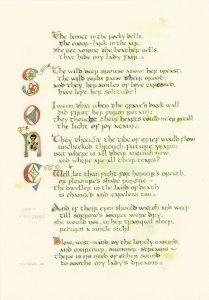 The linnet in the rocky dells,
The moor-lark in the air,
The bee among the heather bells,
That hide my lady fair:
The wild deer browse above her breast;
The wild birds raise their brood;
And they, her smiles of love caressed,
have left her solitude!
I ween, that when the grave's dark wall
Did first her form retain;
They thought their hearts could ne'er recall
The light of joy again.
They thought the tide of grief would flow
unchecked through future years;
But where is all their anguish now,
and where are all their tears?
Well, let them fight for honour's breath,
or pleasure's shade pursue—
The dweller in the land of death
is changed and careless too.
And if their eyes should watch and weep
till sorrow's source were dry,
she would not, in her tranquil sleep,
return a single sigh!
Blow, west-wind, by the lonely mound,
And murmur, summer-streams—
There is no need of other sound
to soothe my lady's dreams.